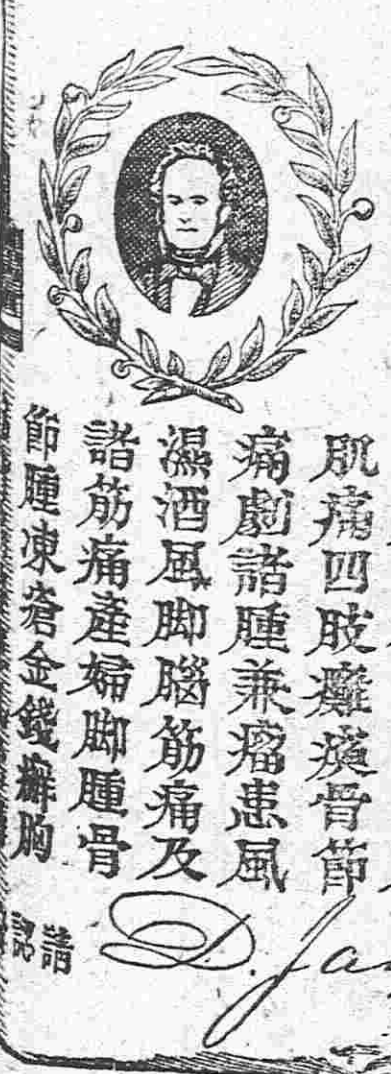 肌痛四肢癱瘓骨節
痛劇諸腫兼瘤患風
濕酒風脚腦筋痛及
諸筋痛產婦脚腫骨
節腫凍瘡金錢癬胸
請
認
D. Ja